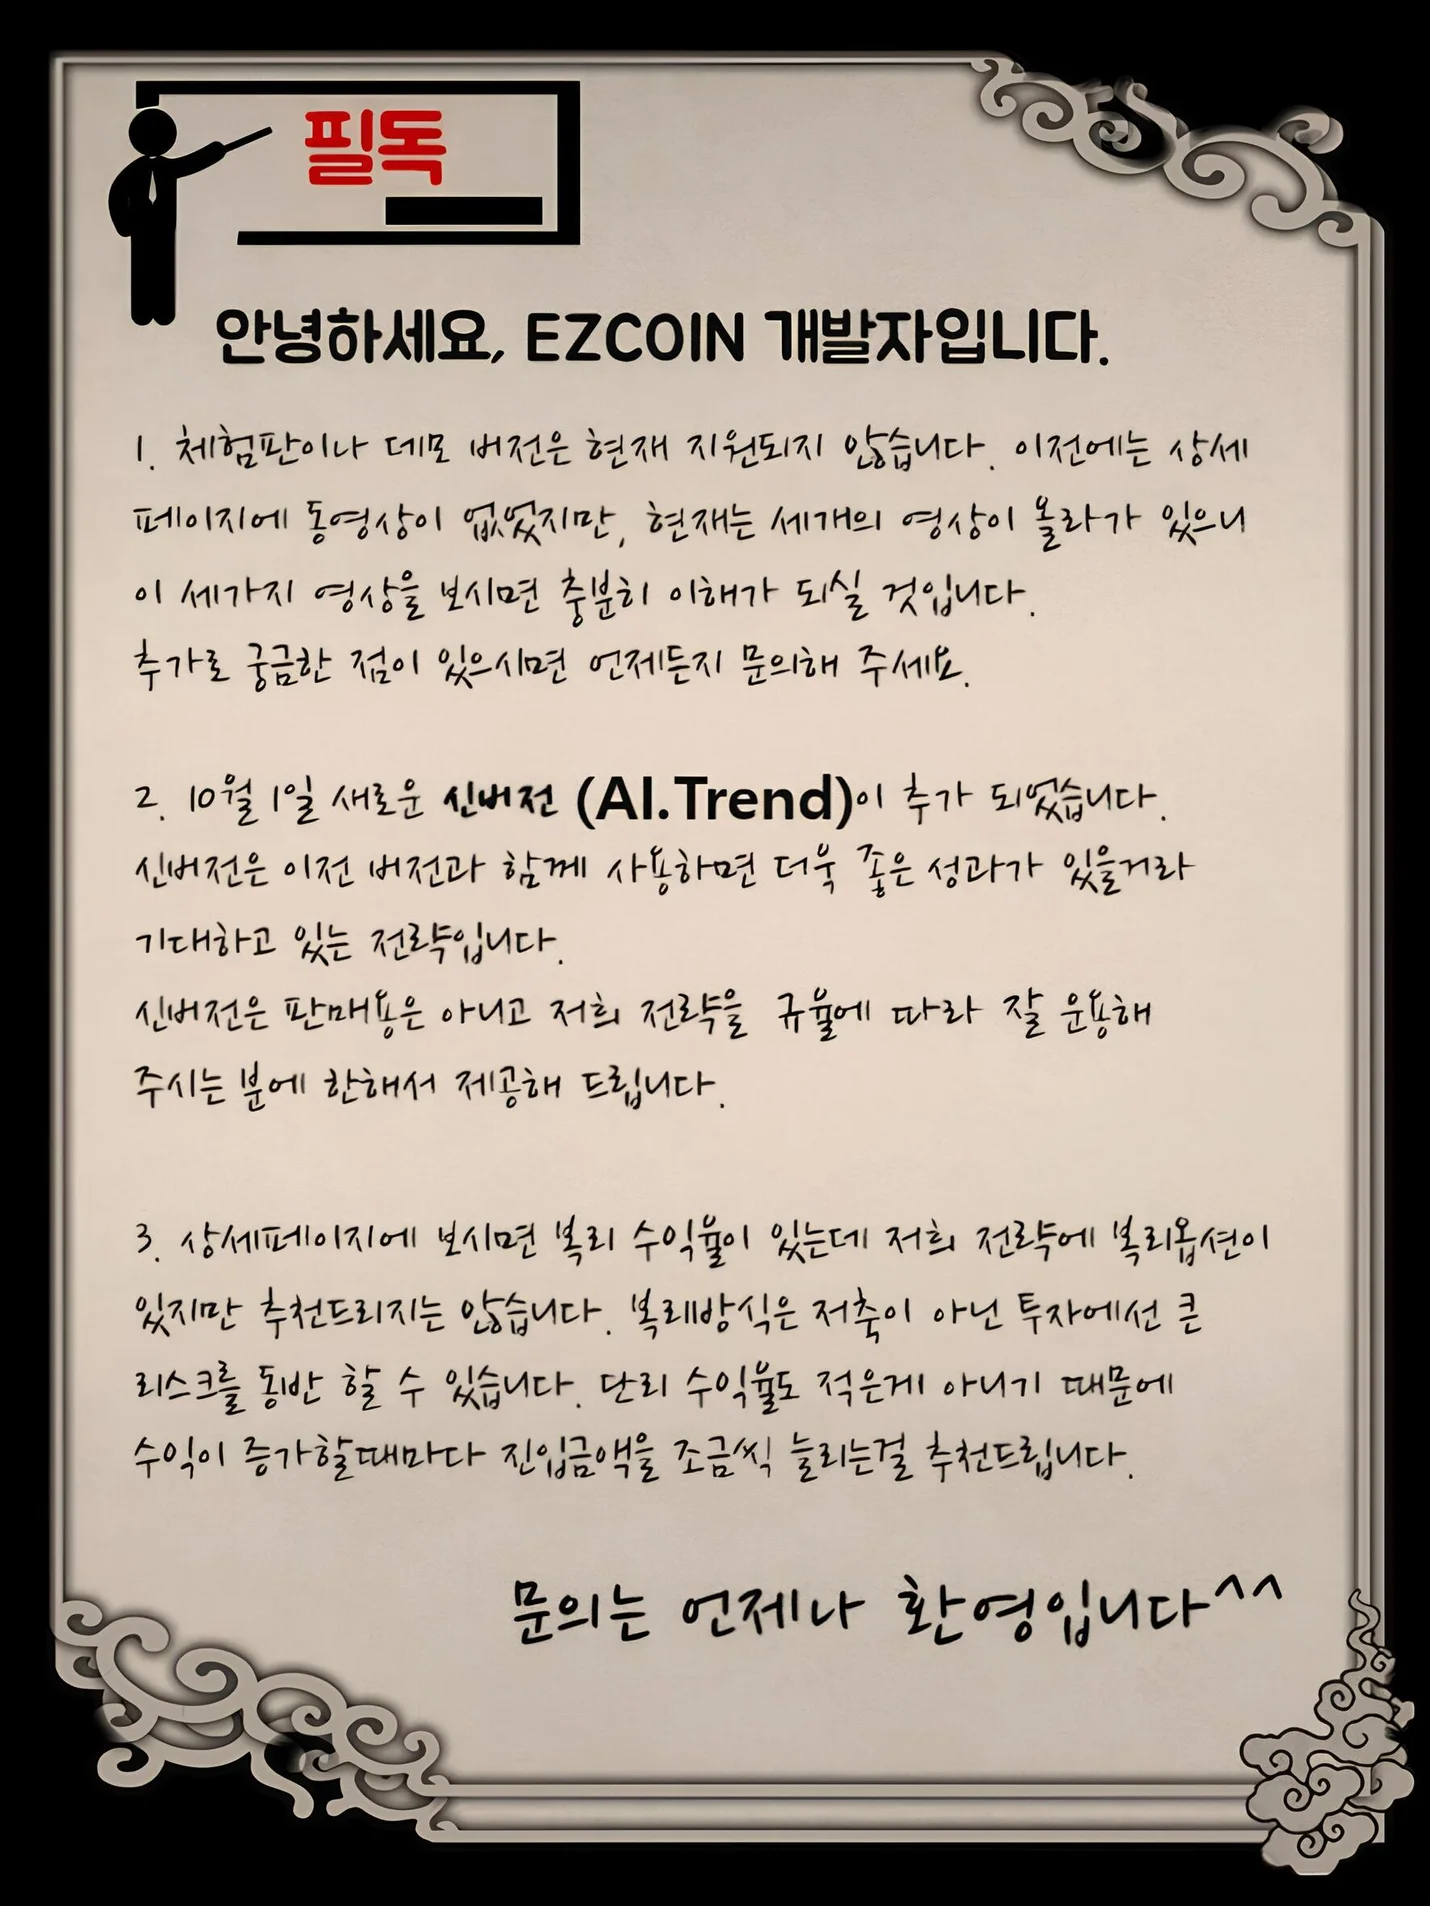 필독
안녕하세요, EZCOIN 개발자입니다.
1. 체험판이나 데모 버전은 현재 지원되지 않습니다. 이전에는 상세
페이지에 동영상이 없었지만, 현재는 세개의 영상이 올라가 있으니
이 세가지 영상을 보시면 충분히 이해가 되실 것입니다.
추가로 궁금한 점이 있으시면 언제든지 문의해 주세요.
2. 10월 1일 새로운 신버전 (AI.Trend)이 추가 되었습니다.
신버전은 이전 버전과 함께 사용하면 더욱 좋은 성과가 있을거라
기대하고 있는 전략입니다.
신버전은 판매용은 아니고 저희 전략을 규율에 따라 잘 운용해
주시는 분에 한해서 제공해 드립니다.
3. 상세페이지에 보시면 복리 수익율이 있는데 저희 전략에 복리옵션이
있지만 추천드리지는 않습니다. 복리방식은 저축이 아닌 투자에선 큰
리스크를 동반 할 수 있습니다. 단리 수익율도 적은게 아니기 때문에
수익이 증가할때마다 진입금액을 조금씩 늘리는걸 추천드립니다.
문의는 언제나 환영입니다^^